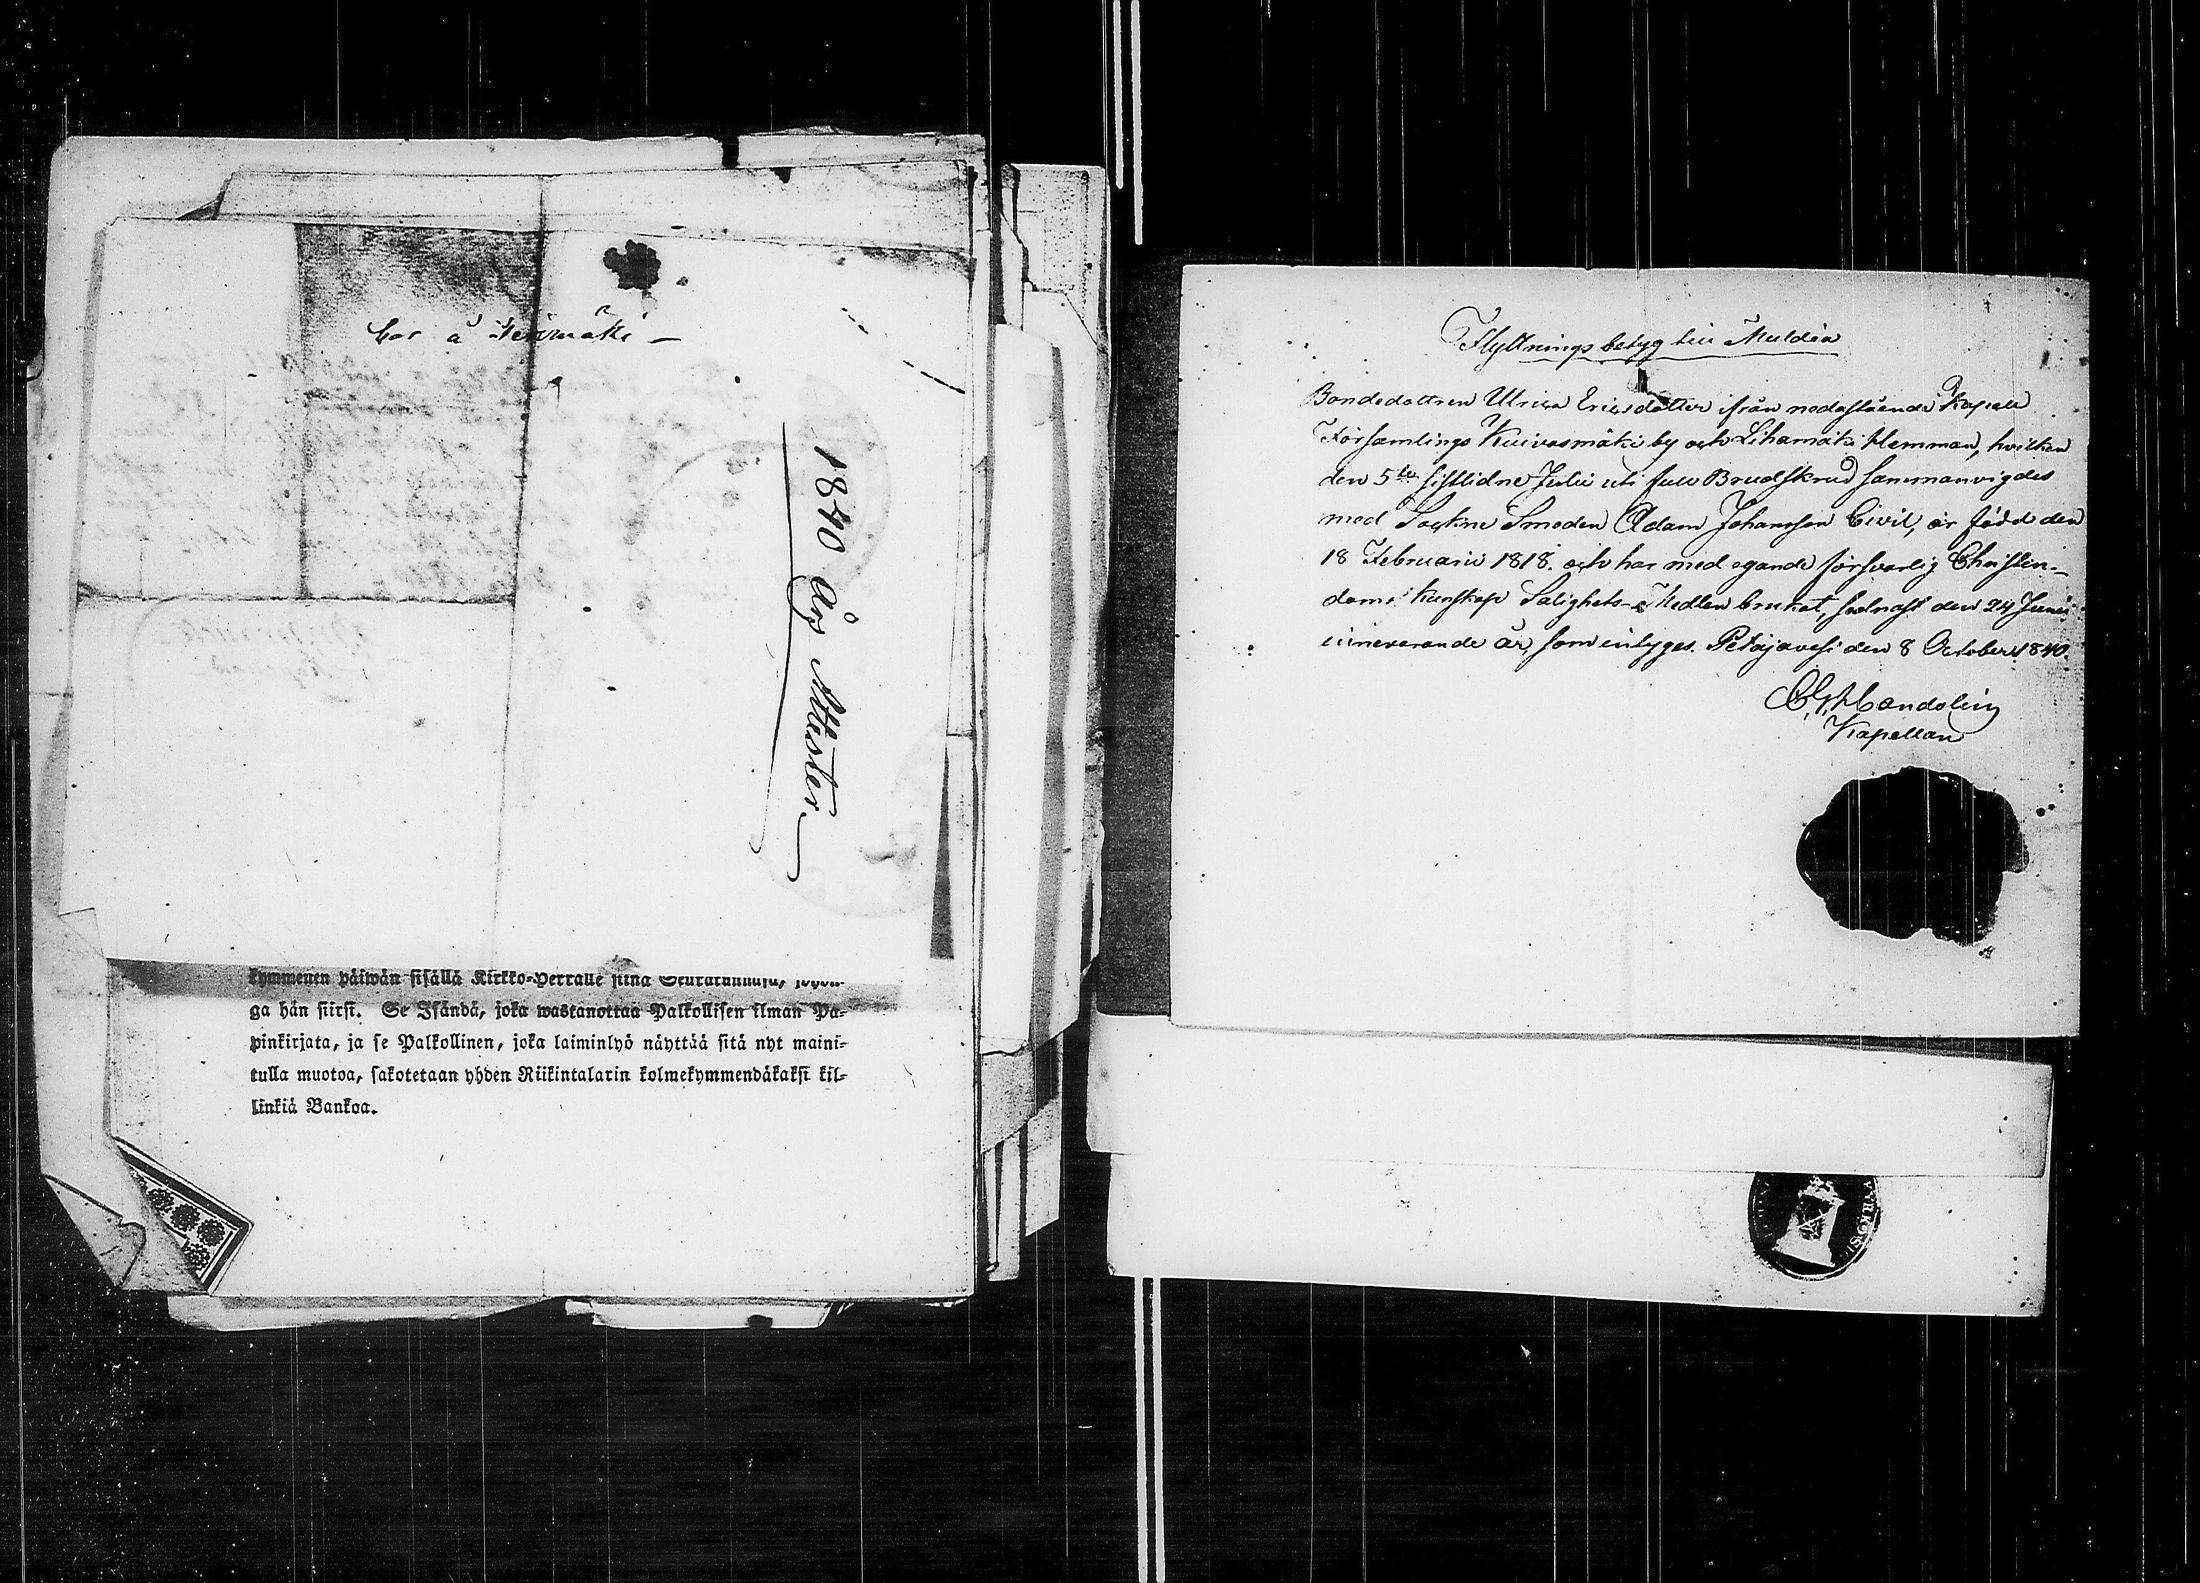 bor å
1840 års Attester
kymmenen päiwän sisällä Kirkko-Herralle siinä Seurakunnasa, johon-
ga hän siirsi. Se Isändä, joka wastanottaa Palkollisen ilman Pa-
pinkirjata, ja se Palkollinen, joka laiminlyö näyttää sitä nyt maini-
tulla muotoa, sakotetaan yhden Riikintalarin kolmekymmendäkaksi kil-
linkiä Bankoa.
Flyttnings betyg till Muldia
Bondedottren Ulrica Ericsdotter ifrån nedastående Kapell
Församlings Kuivasmäki by och Lihamäki Hemman, hvilken
den 5te sistlidne Julii uti full Brudskrud sammanvigdes
med Sockne Smeden Adam Johansson Civil, är född den
18 Februarii 1818. och har med egande försvarlig Christen-
doms kunskap Salighets-Medlen brukat, sednast den 24 Junii
innevarande år, som intygas. Petäjävesi den 8 October 1840.
C. G. Mandolin
Kapellan